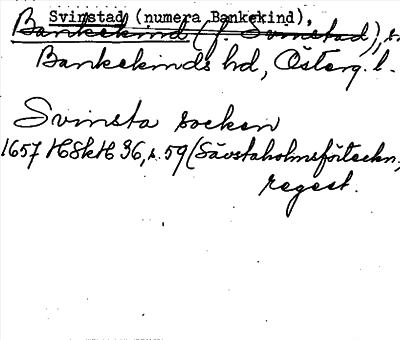 Svinstad (numera Bankekind),
Bankekind (f. Svinstad), s
Bankekinds hd, Österg. l.
Svinsta socken
1657 HSkH 36, s. 59 (Sävstaholmsförteckn,
regest.